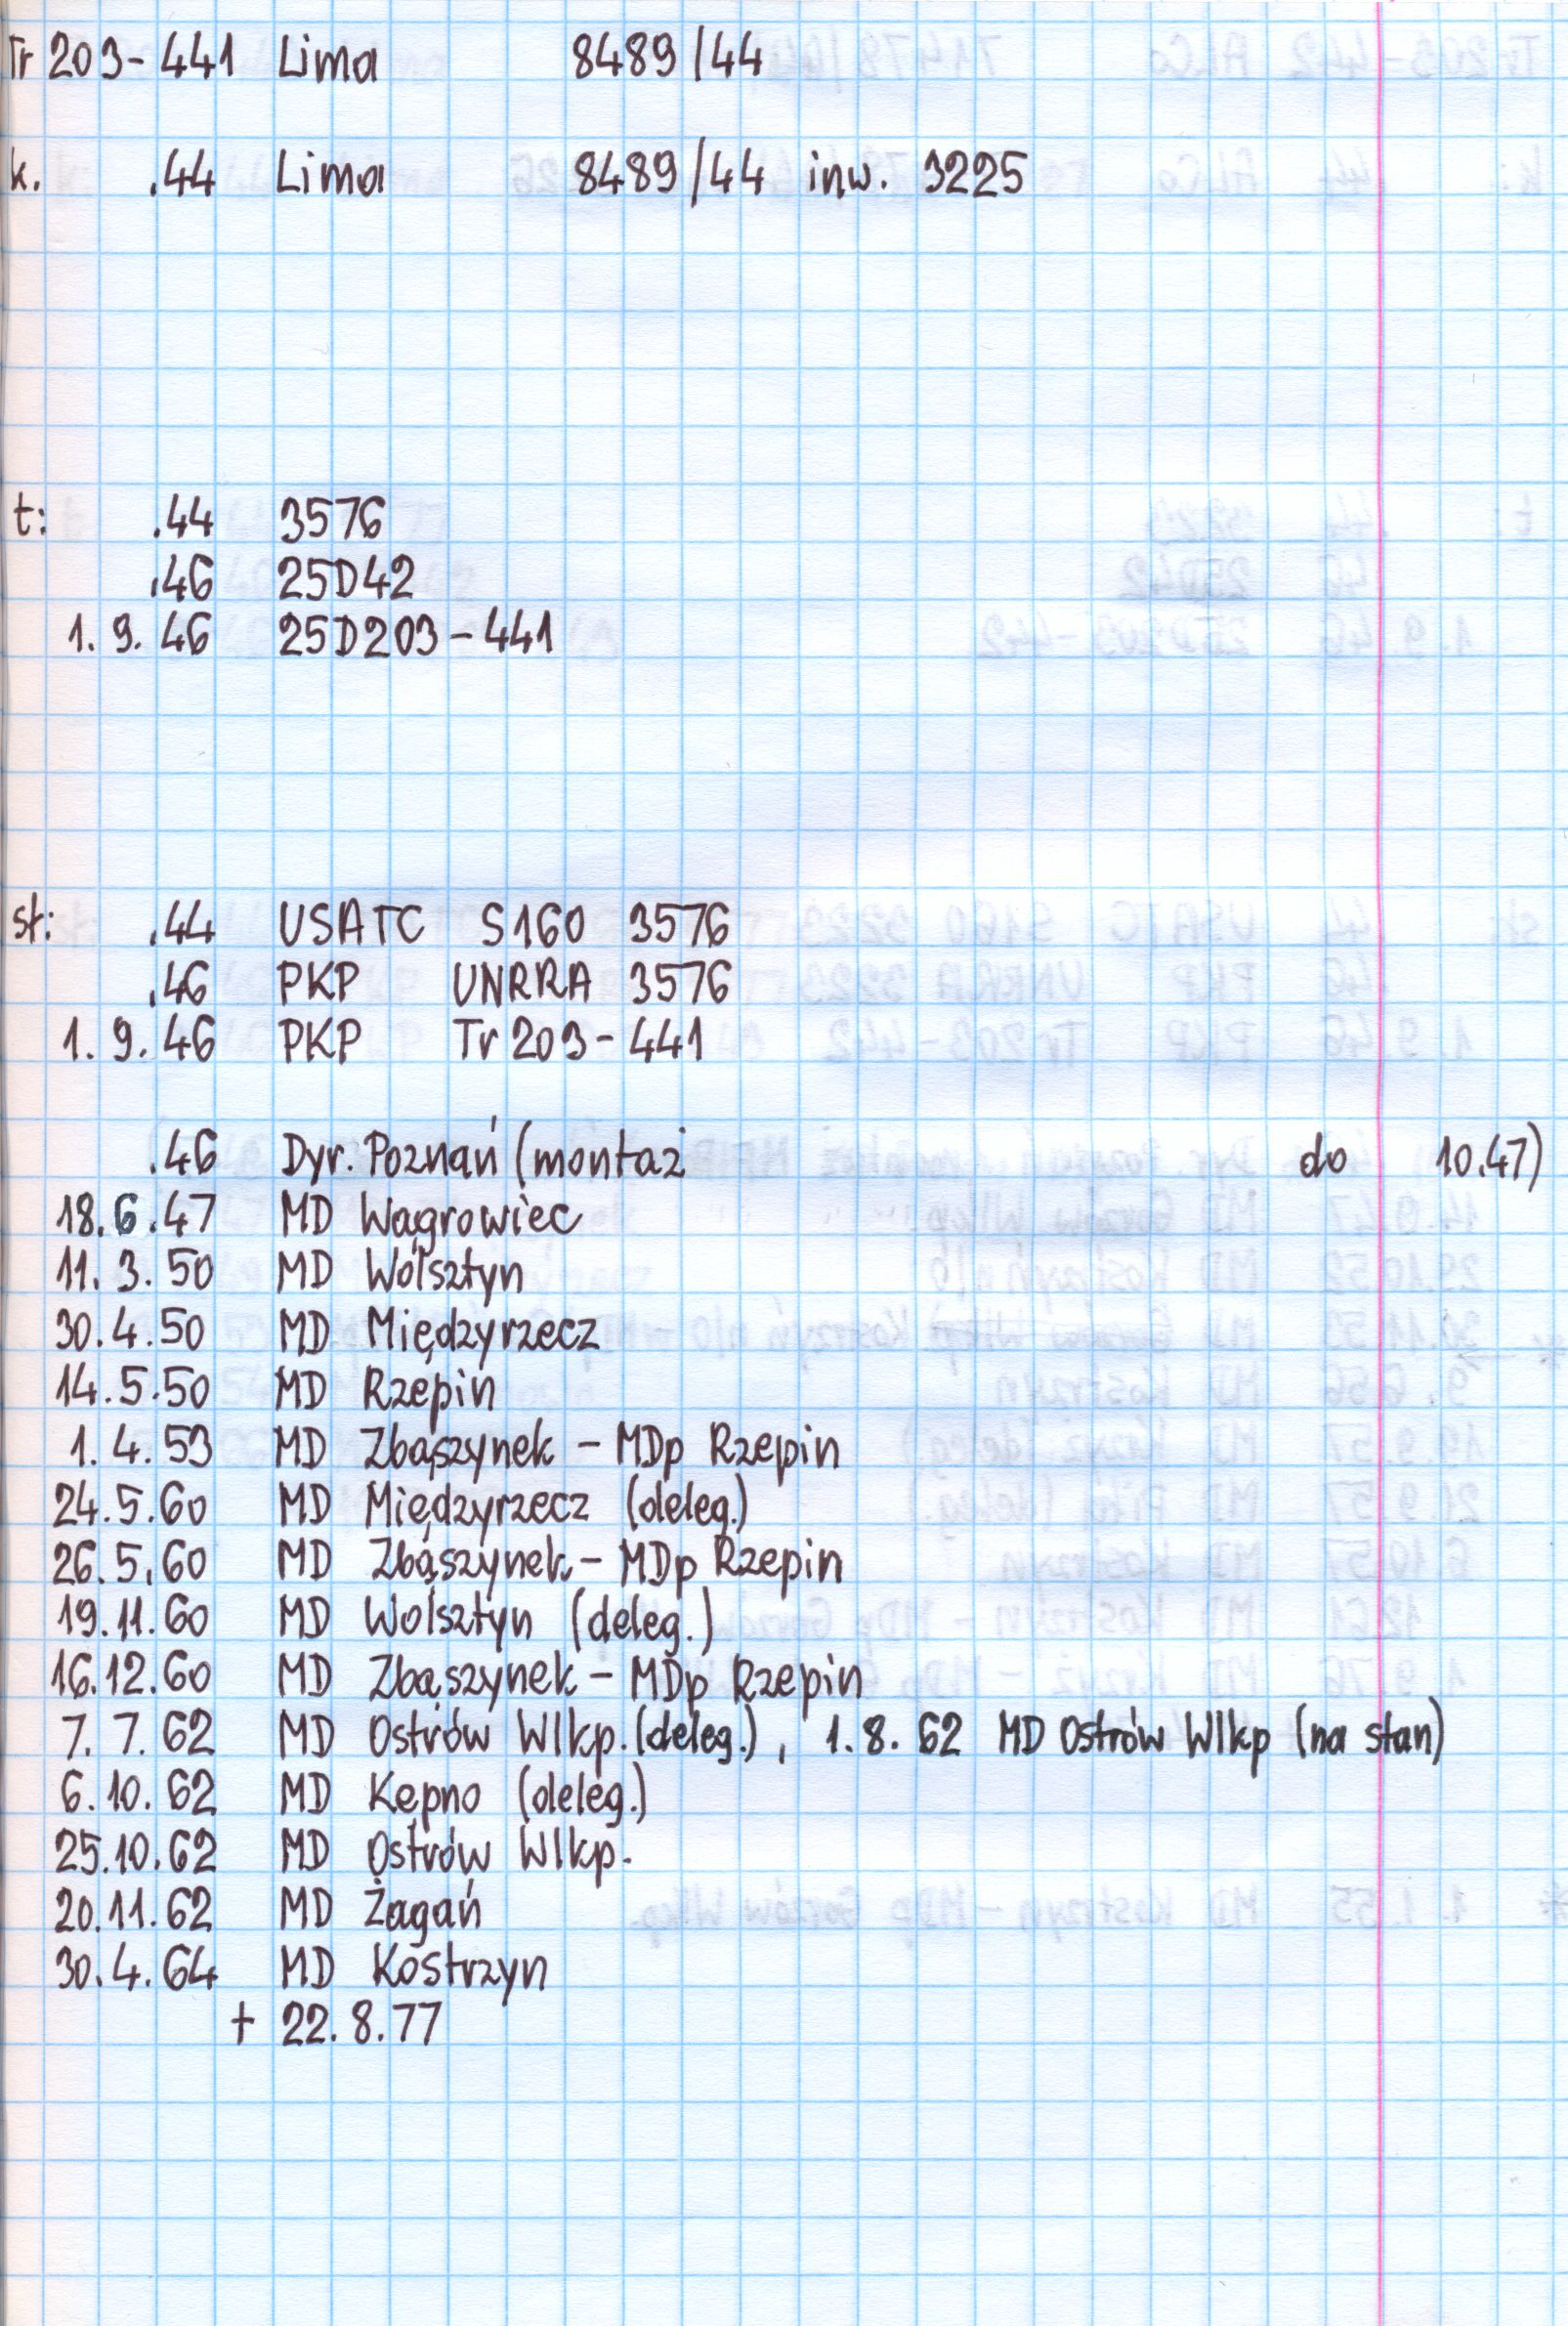 Tr 203-441 Lima 8489/44
k. .44 Lima 8489/44 inw. 3225
t: .44 3576
.46 25D42
1. 9. 46 25D203-441
st: .44 USATC S160 3576
.46 PKP UNRRA 3576
1. 9. 46 PKP Tr 203-441
.46 Dyr. Poznań (montaż do 10.47)
18.6.47 MD Wągrowiec
11. 3. 50 MD Wolsztyn
30. 4. 50 MD Międzyrzecz
14. 5. 50 MD Rzepin
1. 4. 53 MD Zbąszynek - MDp Rzepin
24. 5. 60 MD Międzyrzecz (deleg.)
26. 5. 60 MD Zbąszynek - MDp Rzepin
19. 11. 60 MD Wolsztyn (deleg.)
16. 12. 60 MD Zbąszynek - MDp Rzepin
7. 7. 62 MD Ostrów Wlkp. (deleg.), 1. 8. 62 MD Ostrów Wlkp (na stan)
6. 10. 62 MD Kępno (deleg.)
25. 10. 62 MD Ostrów Wlkp.
20. 11. 62 MD Żagań
30. 4. 64 MD Kostrzyn
+ 22. 8. 77